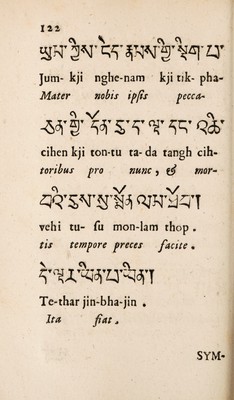 122
ཡུམ་ཀྱིས་ངེད་རྣམས་ཀྱི་སྡིག་པ་
Jum- kji nghe-nam kji tik- pha-
Mater nobis ipsis pecca-
ཅན་གྱི་དོན་དུ་ད་ལྟ་དང་འཆི་
cihen kji ton-tu ta-da tangh cih-
toribus pro nunc, & mor-
བའི་དུས་སུ་སྨོན་ལམ་ཐོབ།
vehi tu- su mon-lam thop.
tis tempore preces facite.
དེ་ལྟར་ཡིན་པ་ཡིན།
Te-thar jin-bha-jin.
Ita fiat.
SYM-